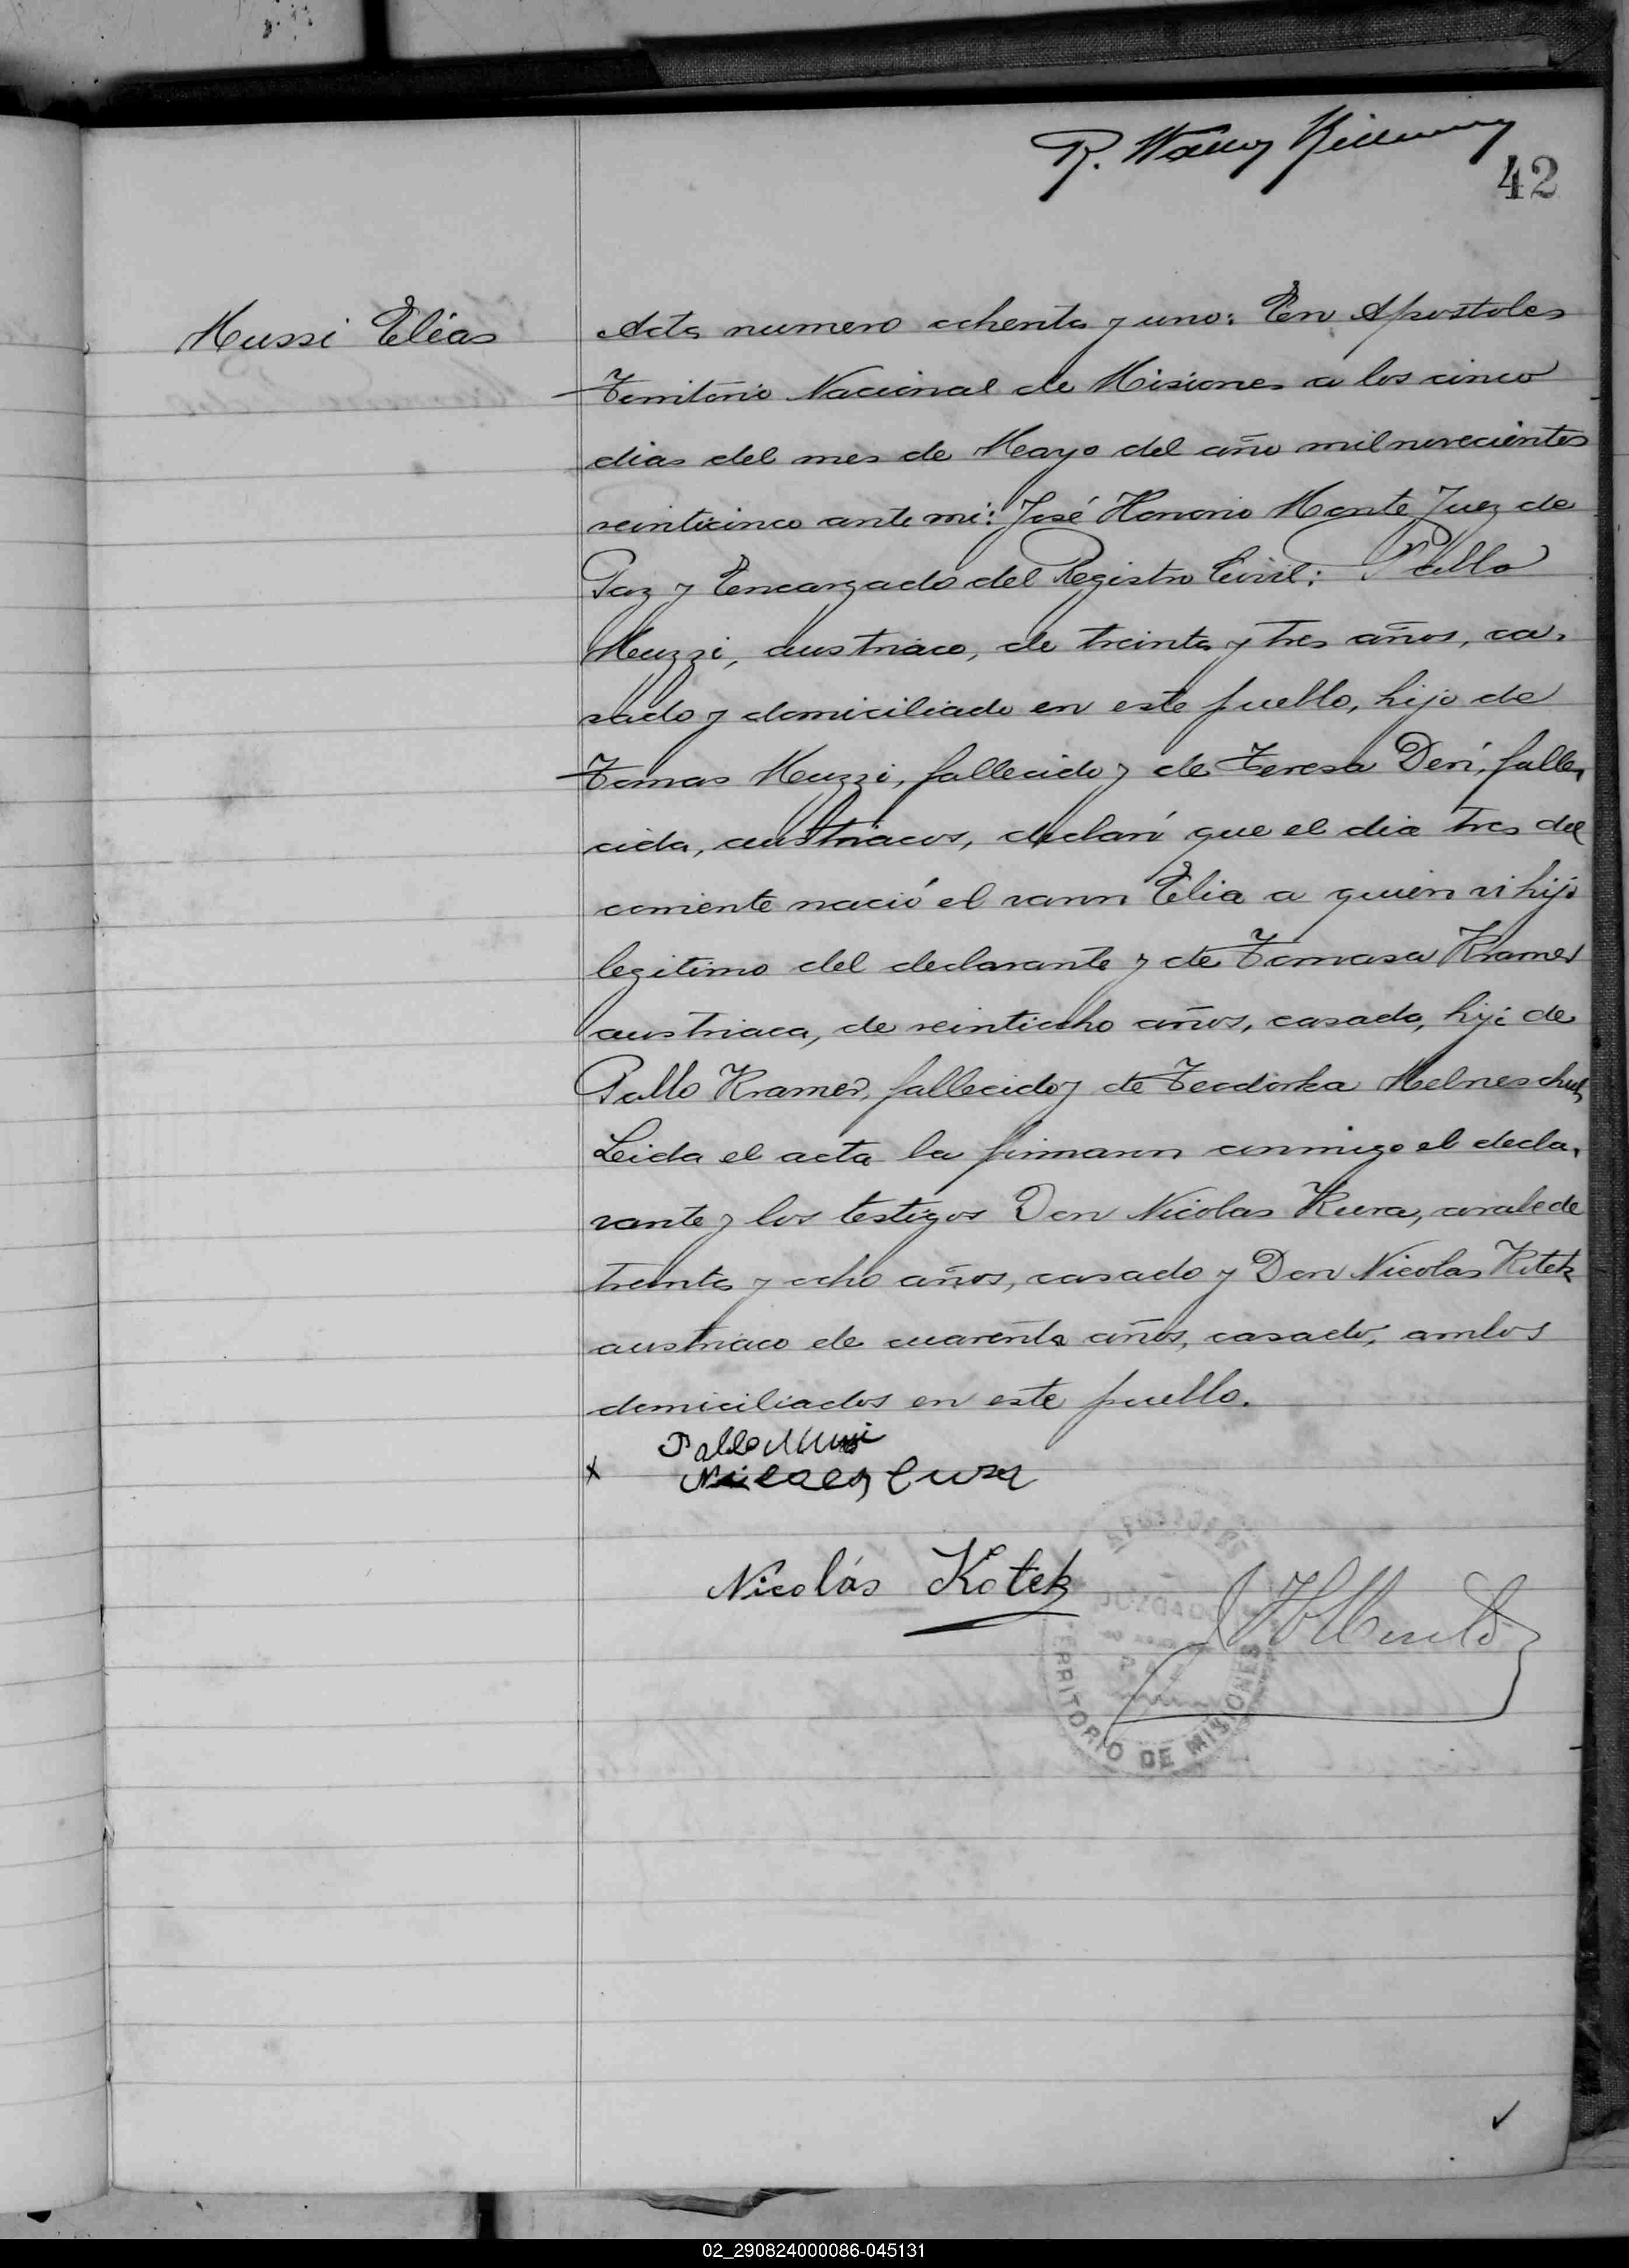 42
Mussi Elías
Acta numero ochenta y uno: En Apostoles
Territorio Nacional de Misiones a los cinco
dias del mes de Mayo del año mil novecientos
veinticinco ante mi: José Honorio Monte Juez de
Paz y Encargado del Registro Civil: Pablo
Muzzi, austriaco, de treinta y tres años, ca-
sado y domiciliado en este pueblo, hijo de
Tomas Muzzi, fallecido y de Teresa Deri, falle-
cida, austriacos, declaró que el dia tres del
corriente nació el varon Elia a quien vi hijo
legitimo del declarante y de Tomasa Kramer
austriaca, de veintiocho años, casada, hija de
Pablo Kramer, fallecido y de Teodorka
Leida el acta la firmaron conmigo el decla-
rante y los testigos Don Nicolas Kura, arabe de
treinta y ocho años, casado y Don Nicolas Kotek
austriaco de cuarenta años, casado, ambos
domiciliados en este pueblo.
Pablo Mussi
x Nicolas Cura
Nicolás Kotek
JUZGADO
TERRITORIO DE MISIONES
02_290824000086-045131